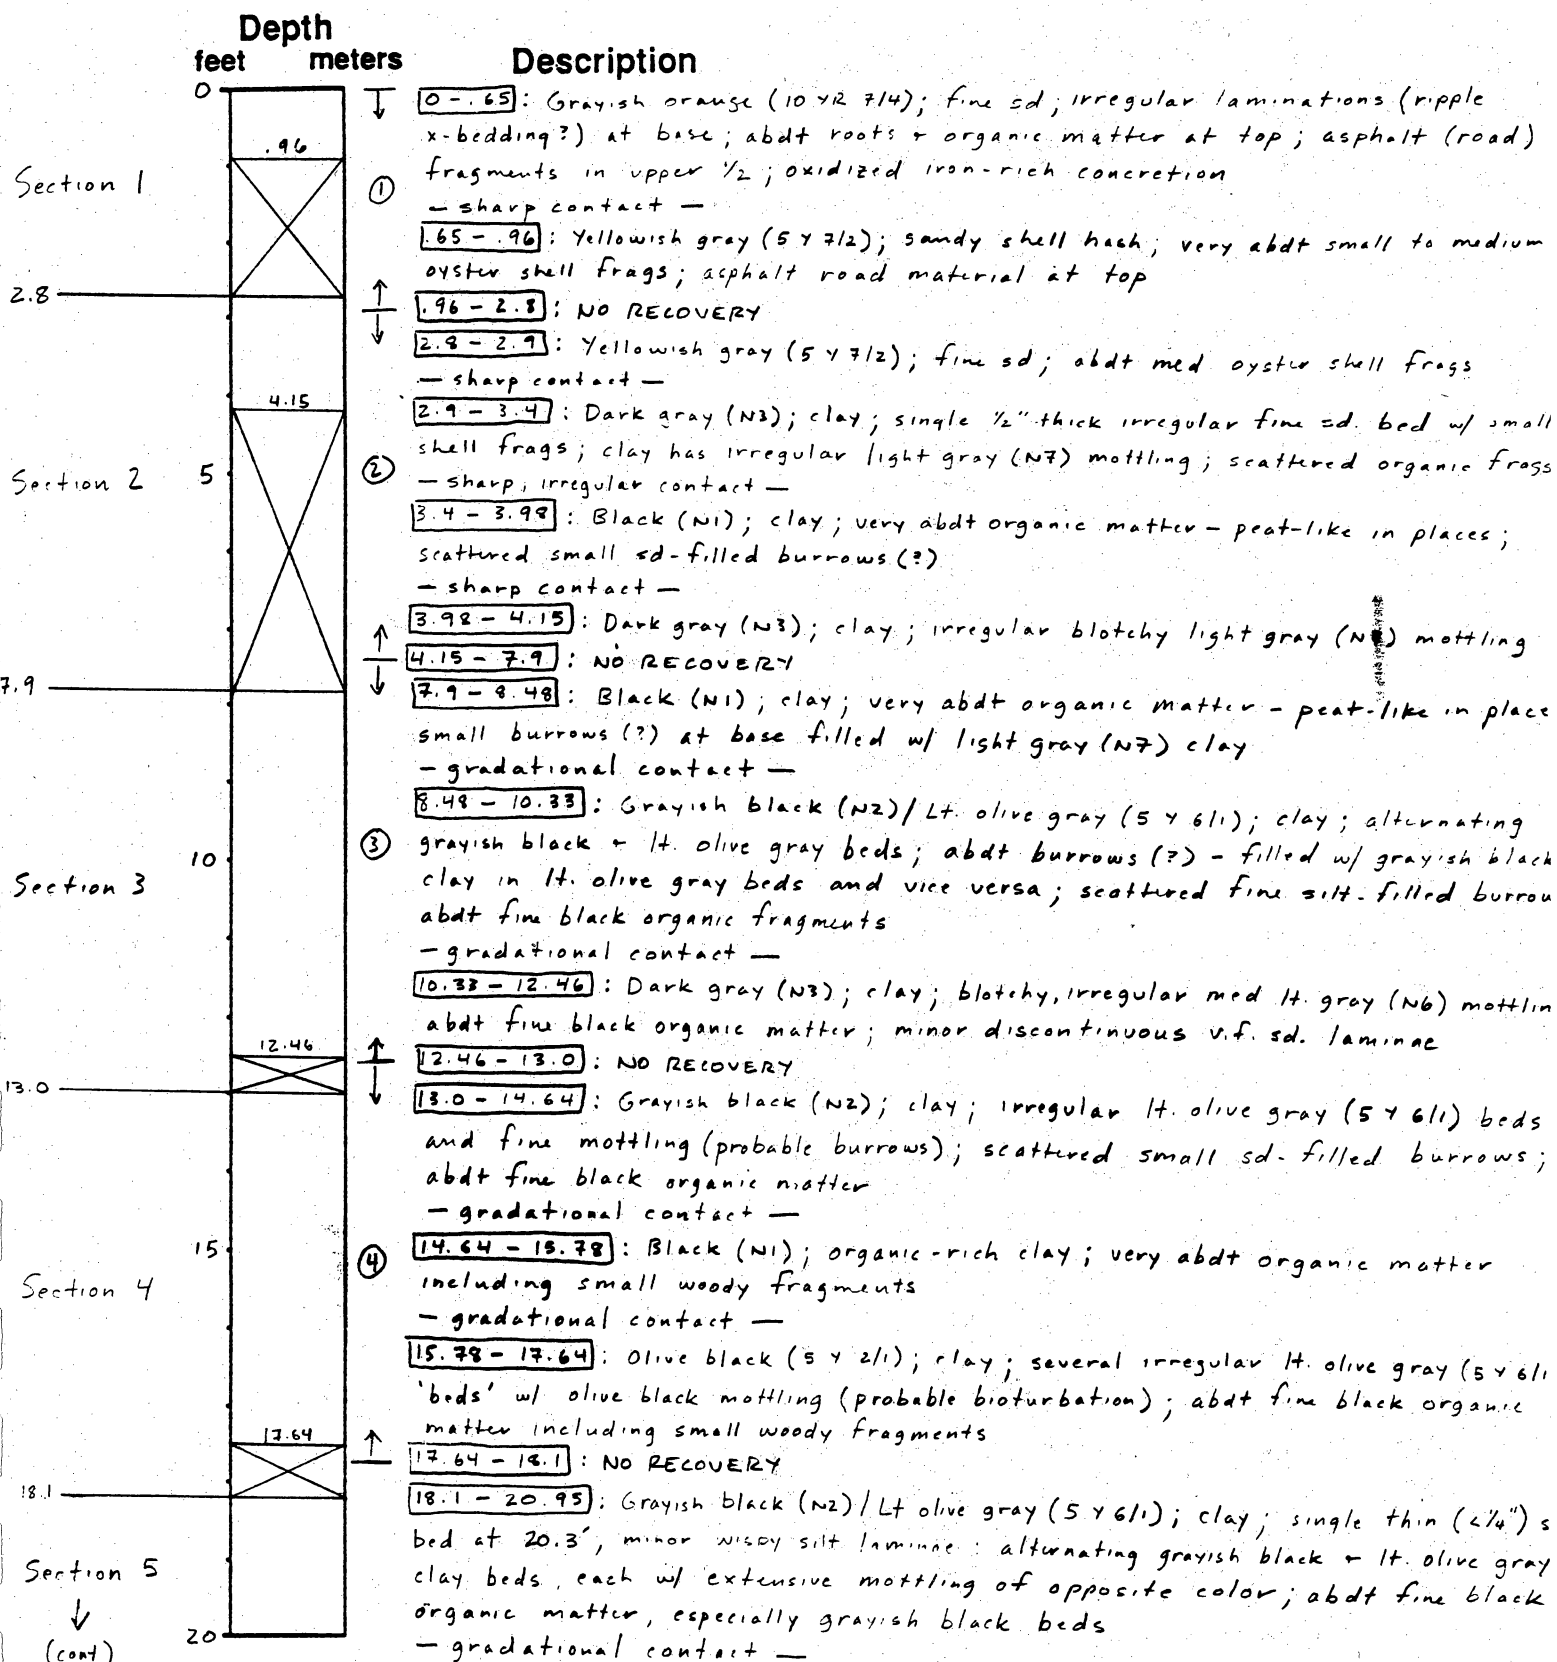 Depth
feet meters Description
0
0 - .65: Grayish orange (10 YR 7/4); fine sd; irregular laminations (ripple
x-bedding?) at base; abdt roots + organic matter at top; asphalt (road)
.96
fragments in upper 1/2; oxidized iron-rich concretion
Section 1
①
— sharp contact —
.65 - .96: Yellowish gray (5 Y 7/2); sandy shell hash; very abdt small to medium
oyster shell frags; asphalt road material at top
2.8
.96 - 2.8: NO RECOVERY
2.8 - 2.9: Yellowish gray (5 Y 7/2); fine sd; abdt med oyster shell frags
— sharp contact —
4.15
2.9 - 3.4: Dark gray (N3); clay; single 1/2" thick irregular fine sd. bed w/ small
shell frags; clay has irregular light gray (N7) mottling; scattered organic frags
Section 2
5
②
— sharp, irregular contact —
3.4 - 3.98: Black (N1); clay; very abdt organic matter - peat-like in places;
scattered small sd-filled burrows (?)
— sharp contact —
3.98 - 4.15: Dark gray (N3); clay; irregular blotchy light gray mottling
4.15 - 7.9: NO RECOVERY
7.9
7.9 - 8.48: Black (N1); clay; very abdt organic matter - peat-like in place
small burrows (?) at base filled w/ light gray (N7) clay
— gradational contact —
8.48 - 10.33: Grayish black (N2)/Lt. olive gray (5 Y 6/1); clay; alternating
10
③
grayish black + lt. olive gray beds; abdt burrows (?) - filled w/ grayish black
Section 3
clay in lt. olive gray beds and vice versa; scattered fine silt-filled burrow
abdt fine black organic fragments
— gradational contact —
10.33 - 12.46: Dark gray (N3); clay; blotchy, irregular med lt. gray (N6) mottlin
abdt fine black organic matter; minor discontinuous v.f. sd. laminae
12.46
12.46 - 13.0: NO RECOVERY
13.0
13.0 - 14.64: Grayish black (N2); clay; irregular lt. olive gray (5 Y 6/1) beds
and fine mottling (probable burrows); scattered small sd-filled burrows;
abdt fine black organic matter
— gradational contact —
15
④
14.64 - 15.78: Black (N1); organic-rich clay; very abdt organic matter
Section 4
including small woody fragments
— gradational contact —
15.78 - 17.64: Olive black (5 Y 2/1); clay; several irregular lt. olive gray (5 Y 6/1
'beds' w/ olive black mottling (probable bioturbation); abdt fine black organic
17.64
matter including small woody fragments
17.64 - 18.1: NO RECOVERY
18.1
18.1 - 20.95: Grayish black (N2)/Lt olive gray (5 Y 6/1); clay; single thin (<1/4") s
bed at 20.3', minor wispy silt laminae; alternating grayish black + lt. olive gray
Section 5
clay beds, each w/ extensive mottling of opposite color; abdt fine black
organic matter, especially grayish black beds
20
(cont)
— gradational contact —